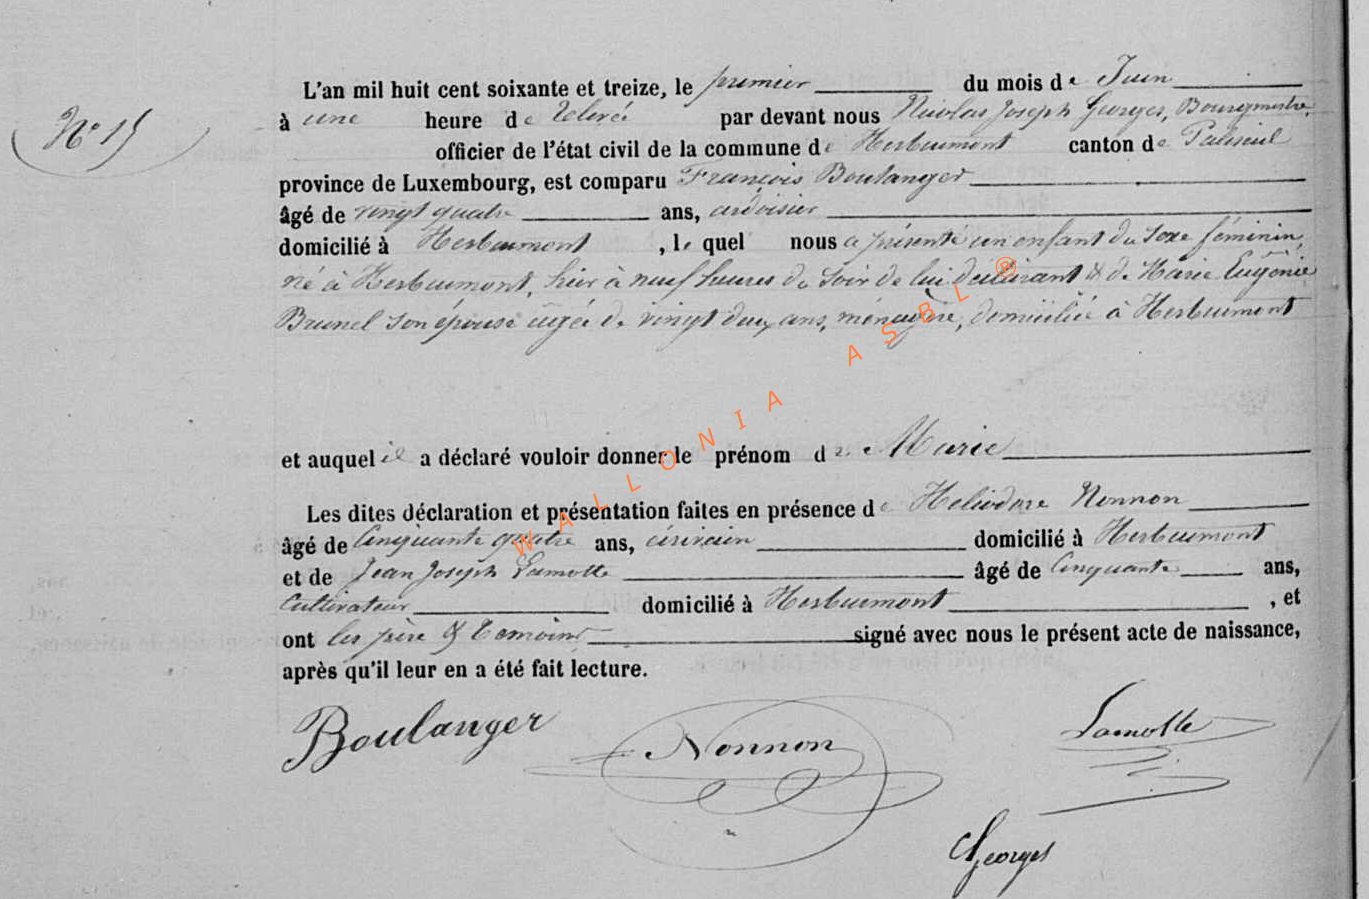 N° 15
L'an mil huit cent soixante et treize, le premier du mois de Juin
à une heure de relevée par devant nous Nicolas Joseph Georges, Bourgmestre,
officier de l'état civil de la commune de Herbeumont canton de Paliseul
province de Luxembourg, est comparu François Boulanger
âgé de vingt quatre ans, ardoisier
domicilié à Herbeumont, le quel nous a présenté un enfant du sexe féminin,
né à Herbeumont, hier à neuf heures du soir de lui déclarant & de Marie Eugénie
Brunel son épouse âgée de vingt deux ans, ménagère, domiciliée à Herbeumont
et auquel il a déclaré vouloir donner le prénom de Marie
Les dites déclaration et présentation faites en présence de Heliodore Nonnon
âgé de Cinquante quatre ans, écrivain domicilié à Herbeumont
et de Jean Joseph Lamotte âgé de Cinquante ans,
Cultivateur domicilié à Herbeumont, et
ont les père & témoins signé avec nous le présent acte de naissance,
après qu'il leur en a été fait lecture.
Boulanger Nonnon Lamotte
Georges
WALLONIA ASBL ®